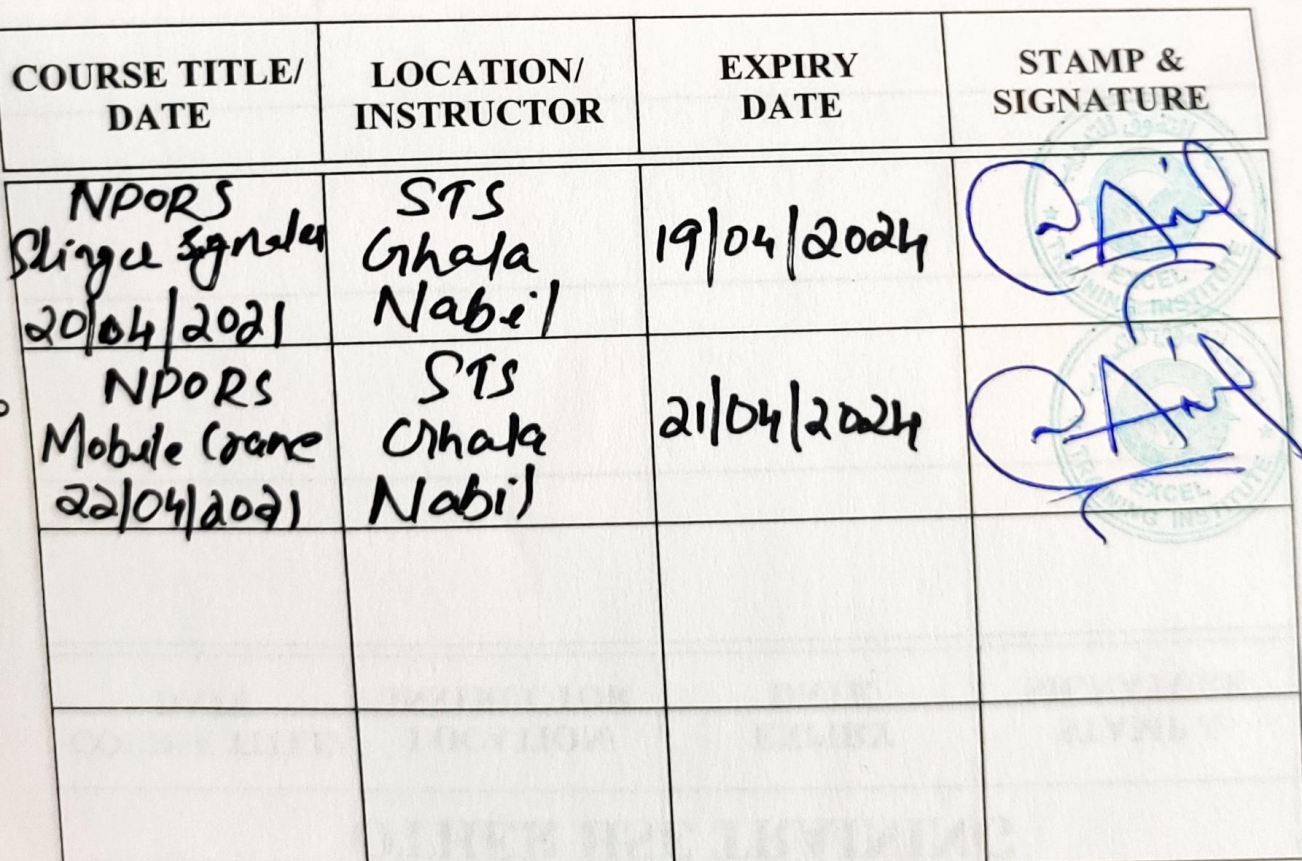 COURSE TITLE/
DATE
LOCATION/
INSTRUCTOR
EXPIRY
DATE
STAMP &
SIGNATURE
NPORS
Slinger Signaler
20/04/2021
STS
Ghala
Nabil
19/04/2024
EXCEL
TRAINING INSTITUTE
NPORS
Mobile Crane
22/04/2021
STS
Ghala
Nabil
21/04/2024
EXCEL
TRAINING INSTITUTE